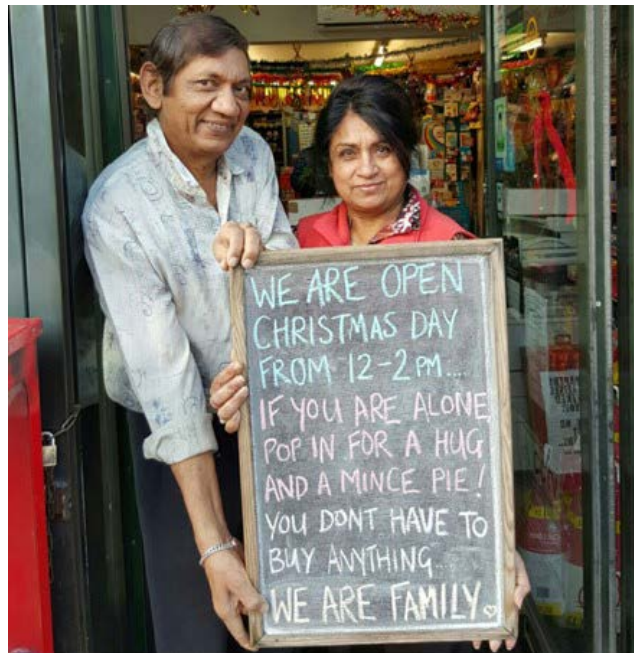 WE ARE OPEN
CHRISTMAS DAY
FROM 12-2PM....
IF YOU ARE ALONE,
POP IN FOR A HUG
AND A MINCE PIE!
YOU DONT HAVE TO
BUY ANYTHING...
WE ARE FAMILY♡